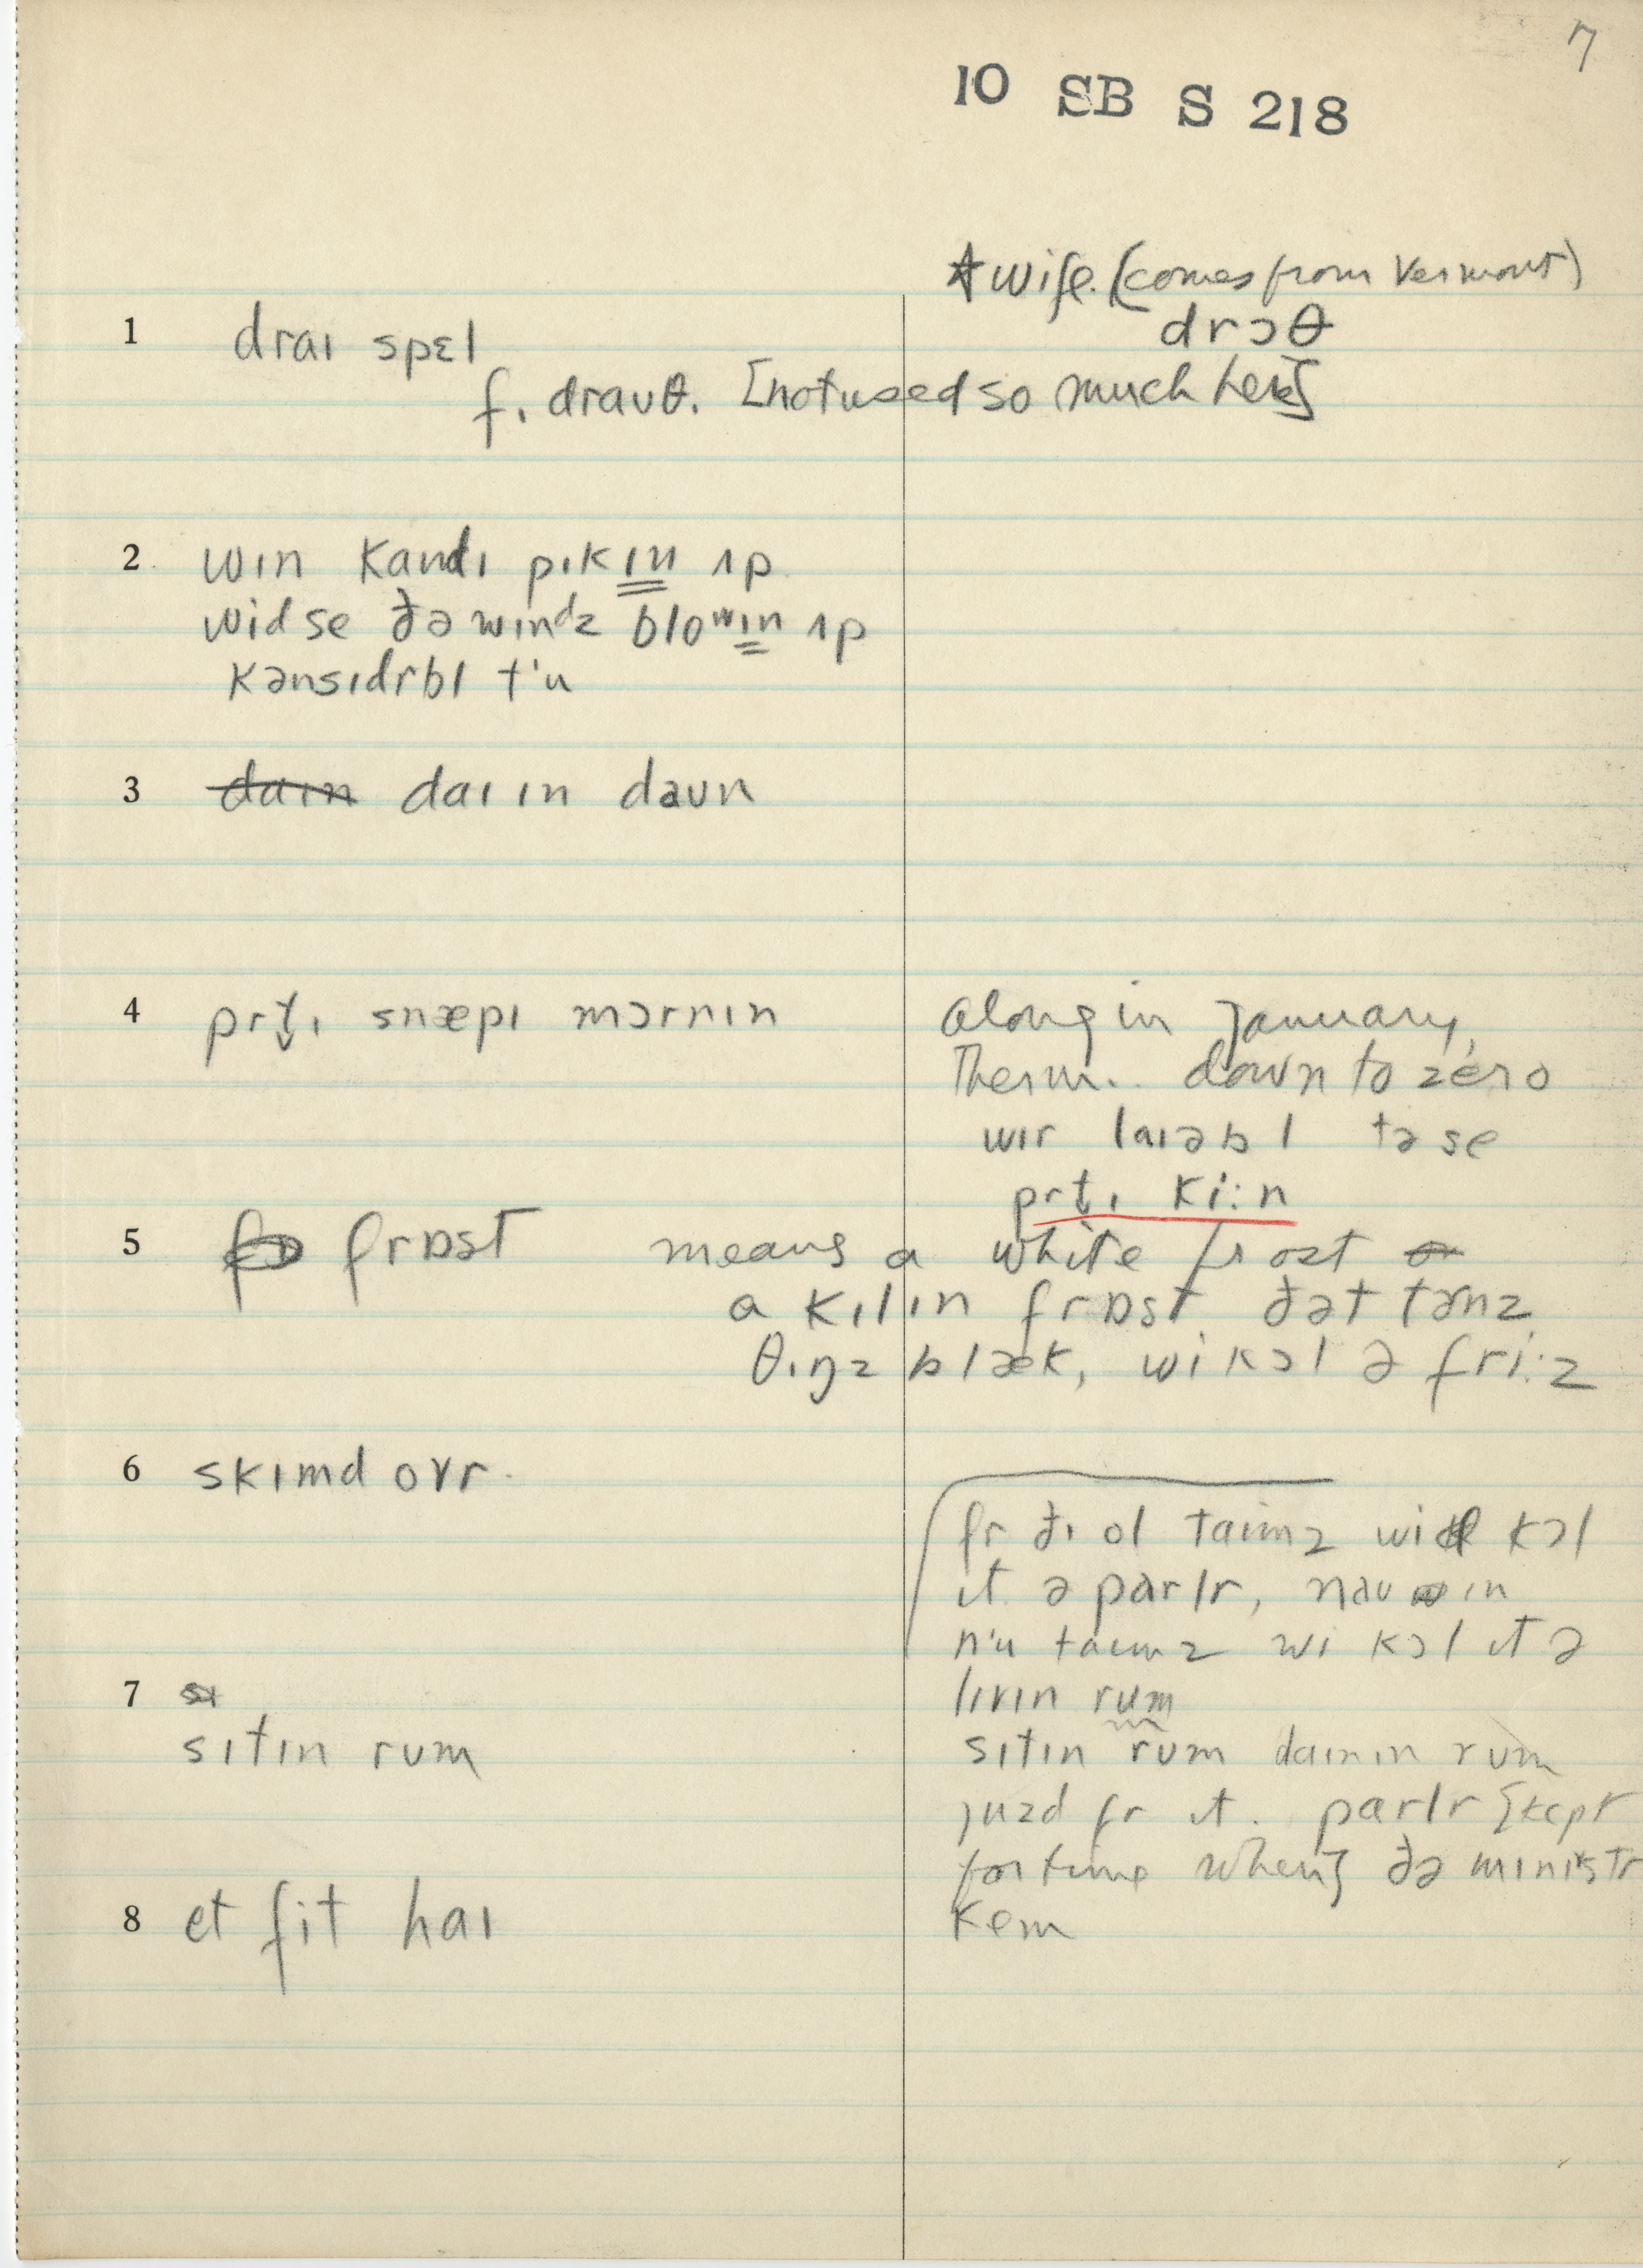 7
10 SB S 218
wife. (comes from Vermont)
drɔθ
1 draɪ spɛl
f. draʊθ. [not used so much here]
2 wɪn kandɪ pɪkɪn ʌp
widse ðə wɪndz bloʷɪn ʌp
kənsɪdrbl t'u
3 daɪn daɪɪn daʊn
4 prt̬ɪ snæpɪ mɔrnɪn
along in January,
Therm.. down to zero
wɪr laɪəbl tə se
prt̬ɪ ki:n
5 frɒst means a white frost
a kɪlɪn frɒst ðət tɚnz
θɪŋz blæk, wi kɔl ə fri:z
6 skɪmd ovr.
fr ðɪ ol taɪmz wi kɔl
ɪt ə parlr, naʊ ɪn
n'u taɪmz wi kɔl ɪt ə
lɪvɪn rum
7
sɪtɪn rʊm
sɪtɪn rʊm daɪnɪn rʊm
juzd fr ɪt. parlr [kept
for time when] ðə mɪnɪstr
kem
8 et fit haɪ